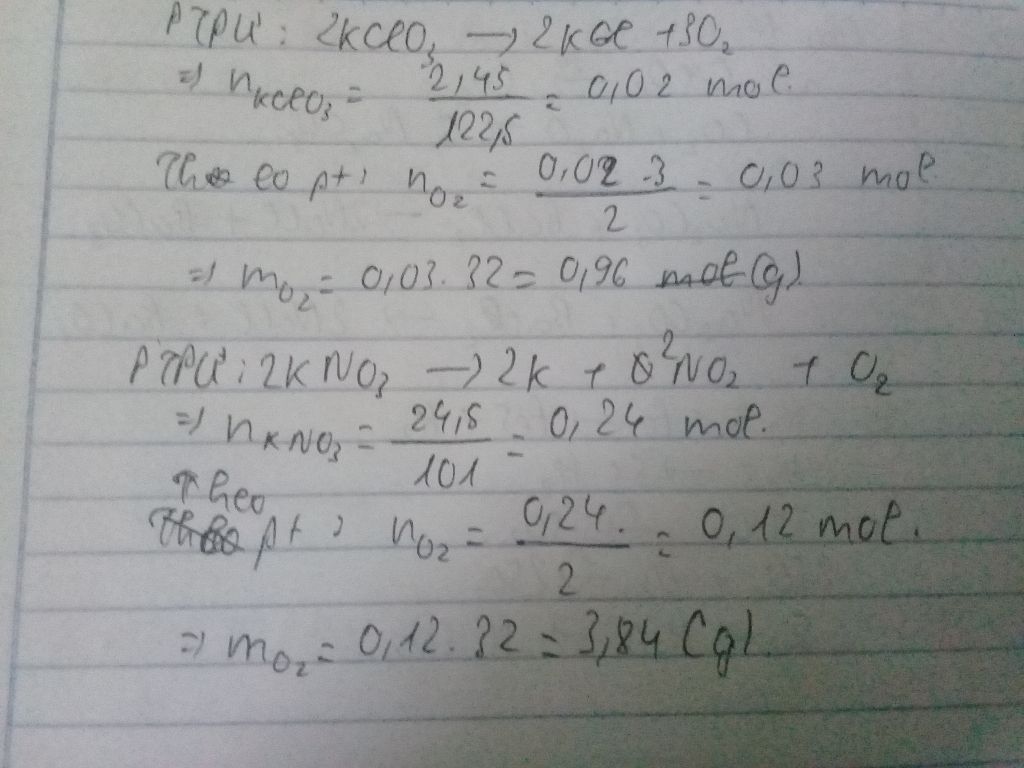 PTPƯ: 2KClO₃ → 2KCl + 3O₂
=> nKClO₃ = 2,45/122,5 = 0,02 mol.
Theo pt: nO₂ = 0,02 . 3/2 = 0,03 mol
=> mO₂ = 0,03 . 32 = 0,96 (g)
PTPƯ: 2KNO₃ → 2K + 2NO₂ + O₂
=> nKNO₃ = 24,5/101 = 0,24 mol.
Theo pt: nO₂ = 0,24./2 = 0,12 mol.
=> mO₂ = 0,12 . 32 = 3,84 (g).